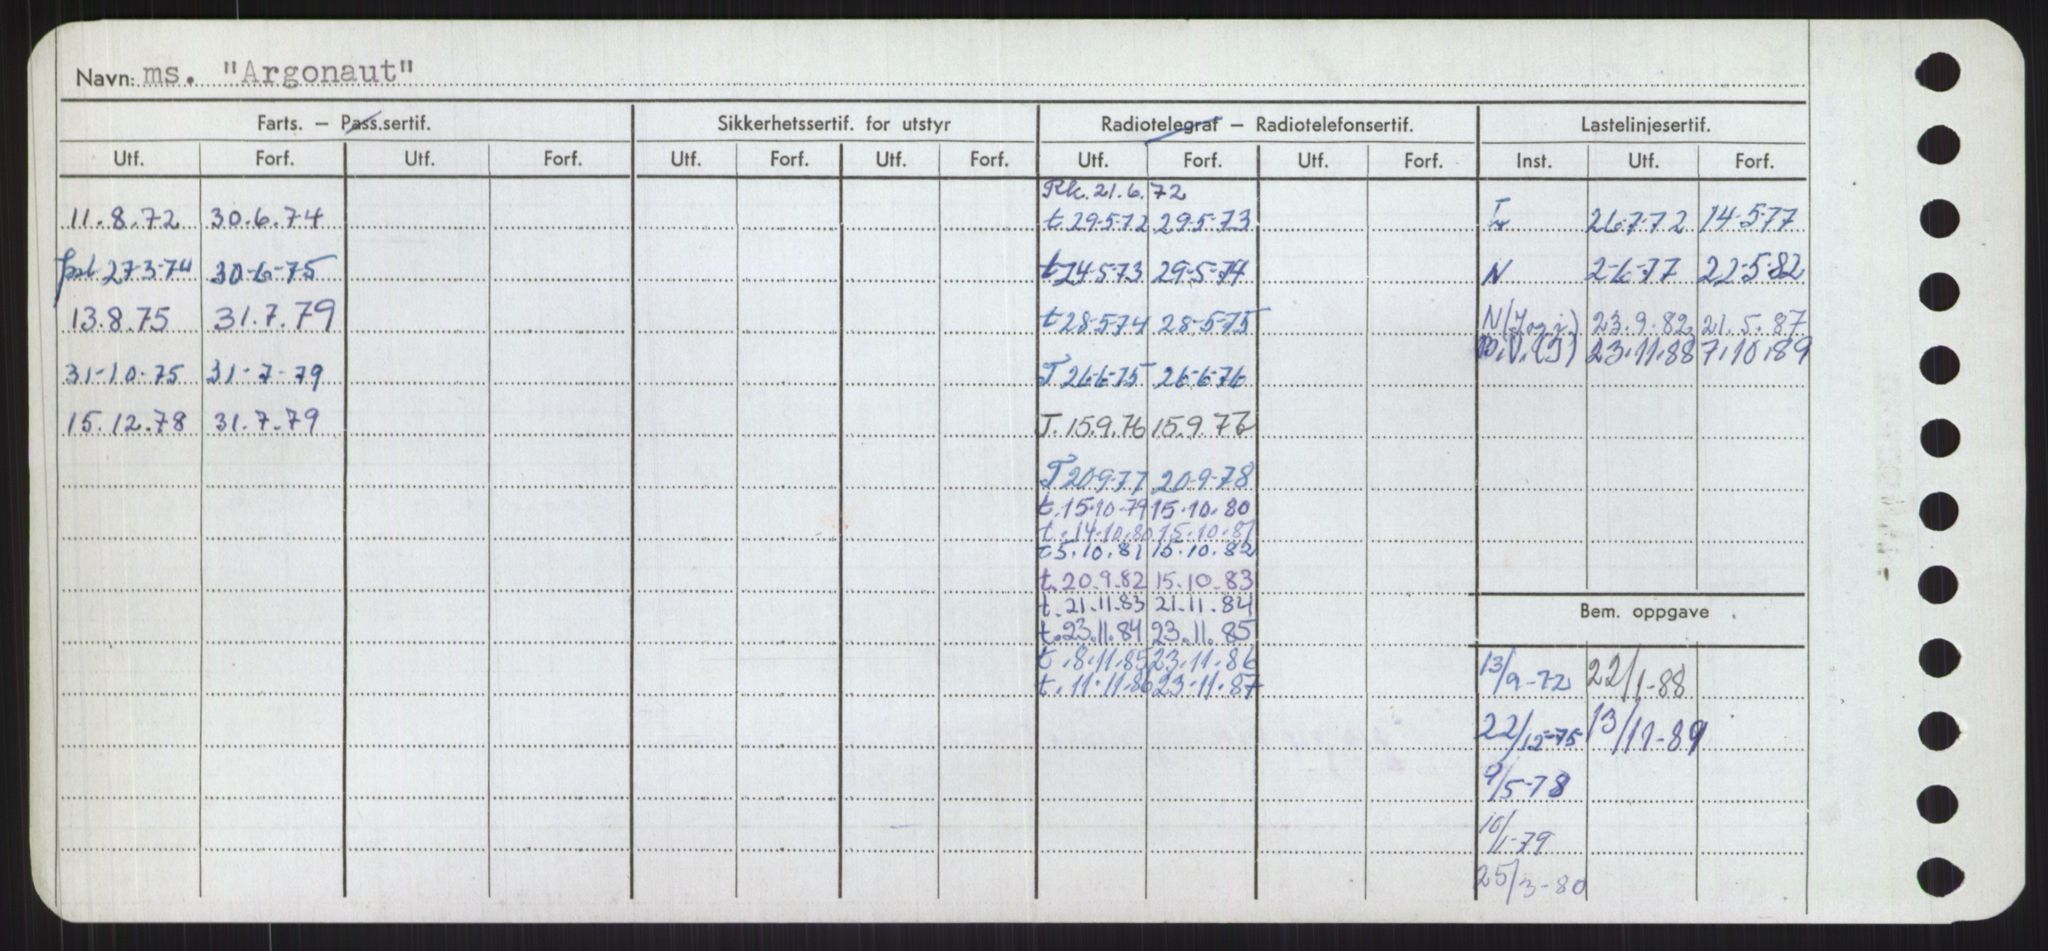 Navn: ms. "Argonaut"
Farts. – Pass.sertif. Sikkerhetssertif. for utstyr Radiotelegraf – Radiotelefonsertif. Lastelinjesertif.
Utf. Forf. Utf. Forf. Utf. Forf. Utf. Forf. Utf. Forf. Utf. Forf. Inst. Utf. Forf.
Rk. 21.6.72
11.8.72 30.6.74 t 29-5-72 29-5-73 26-7-72 14-5-77
27-3-74 30-6-75 t 24-5-73 29-5-74 N 2-6-77 22-5-82
13.8.75 31.7.79 t 28-5-74 28-5-75 23.9.82 21.5.87
23.11.88 7.10.89
31-10-75 31-7-79 T 26-6-75 26-6-76
15.12.78 31.7.79 T. 15.9.76 15.9.77
T 20-9-77 20-9-78
t. 15.10.79 15.10.80
t. 14.10.80 15.10.81
t 5.10.81 15.10.82
t. 20.9.82 15.10.83
t. 21.11.83 21.11.84
Bem. oppgave
t. 23.11.84 23.11.85
t. 8.11.85 23.11.86
13/9-72 22/1-88
t. 11.11.86 23.11.87
22/12-75 13/11-89
9/5-78
10/1-79
25/3-80